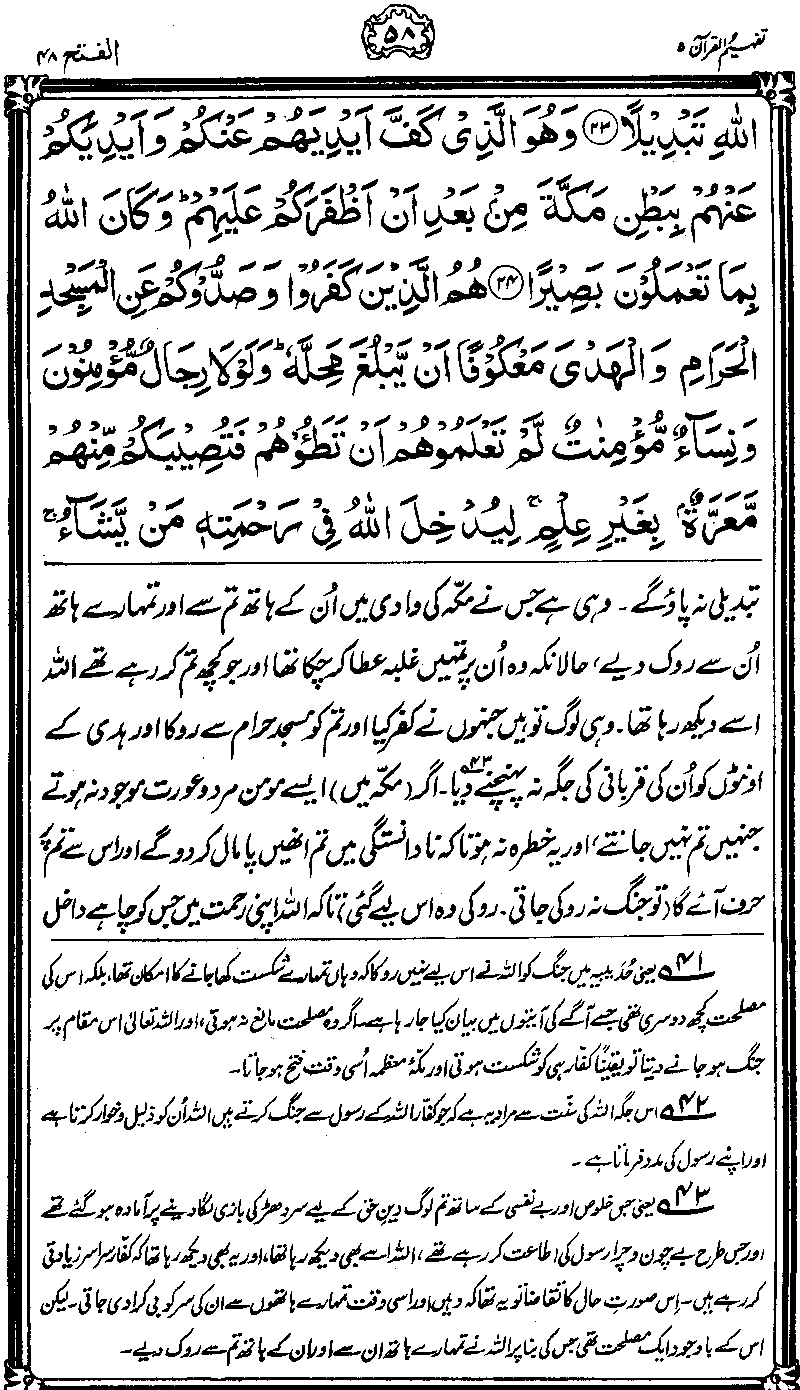 تفہیم القرآن ۵
۵۸
الفتح ۴۸
اللهِ تَبْدِيْلًا ﴿۲۳﴾ وَهُوَ الَّذِيْ كَفَّ اَيْدِيَهُمْ عَنْكُمْ وَاَيْدِيَكُمْ
عَنْهُمْ بِبَطْنِ مَكَّةَ مِنْۢ بَعْدِ اَنْ اَظْفَرَكُمْ عَلَيْهِمْ ؕ وَكَانَ اللهُ
بِمَا تَعْمَلُوْنَ بَصِيْرًا ﴿۲۴﴾ هُمُ الَّذِيْنَ كَفَرُوْا وَصَدُّوْكُمْ عَنِ الْمَسْجِدِ
الْحَرَامِ وَالْهَدْيَ مَعْكُوْفًا اَنْ يَّبْلُغَ مَحِلَّهٗ ؕ وَلَوْلَا رِجَالٌ مُّؤْمِنُوْنَ
وَنِسَآءٌ مُّؤْمِنٰتٌ لَّمْ تَعْلَمُوْهُمْ اَنْ تَطَـُٔوْهُمْ فَتُصِيْبَكُمْ مِّنْهُمْ
مَّعَرَّةٌۢ بِغَيْرِ عِلْمٍ ۚ لِيُدْخِلَ اللهُ فِيْ رَحْمَتِهٖ مَنْ يَّشَآءُ ۚ
تبدیلی نہ پاؤ گے۔ وہی ہے جس نے مکّہ کی وادی میں اُن کے ہاتھ تم سے اور تمہارے ہاتھ
اُن سے روک دیے، حالانکہ وہ اُن پر تمہیں غلبہ عطا کر چکا تھا اور جو کچھ تم کر رہے تھے اللہ
اسے دیکھ رہا تھا۔ وہی لوگ تو ہیں جنہوں نے کفر کیا اور تم کو مسجد حرام سے روکا اور ہدی کے
اونٹوں کو اُن کی قربانی کی جگہ نہ پہنچنے دیا۔۴۳ اگر (مکّہ میں) ایسے مومن مرد و عورت موجود نہ ہوتے
جنہیں تم نہیں جانتے، اور یہ خطرہ نہ ہوتا کہ نادانستگی میں تم انھیں پامال کر دو گے اور اس سے تم پر
حرف آئے گا (تو جنگ نہ روکی جاتی۔ روکی وہ اس لیے گئی) تاکہ اللہ اپنی رحمت میں جس کو چاہے داخل
۴۱ یعنی حُدَیبیہ میں جنگ کو اللہ نے اس لیے نہیں روکا کہ وہاں تمہارے شکست کھا جانے کا امکان تھا، بلکہ اس کی
مصلحت کچھ دوسری تھی جسے آگے کی آیتوں میں بیان کیا جا رہا ہے۔ اگر وہ مصلحت مانع نہ ہوتی، اور اللہ تعالیٰ اس مقام پر
جنگ ہو جانے دیتا تو یقیناً کفار ہی کو شکست ہوتی اور مکۂ معظمہ اُسی وقت فتح ہو جاتا۔
۴۲ اس جگہ اللہ کی سنّت سے مراد یہ ہے کہ جو کفار اللہ کے رسول سے جنگ کرتے ہیں اللہ اُن کو ذلیل و خوار کرتا ہے
اور اپنے رسول کی مدد فرماتا ہے۔
۴۳ یعنی جس خلوص اور بے نفسی کے ساتھ تم لوگ دینِ حق کے لیے سر دھڑ کی بازی لگا دینے پر آمادہ ہو گئے تھے
اور جس طرح بے چون و چرا رسول کی اطاعت کر رہے تھے، اللہ اسے بھی دیکھ رہا تھا، اور یہ بھی دیکھ رہا تھا کہ کفار سراسر زیادتی
کر رہے ہیں۔ اِس صورتِ حال کا تقاضا تو یہ تھا کہ وہیں اور اسی وقت تمہارے ہاتھوں سے ان کی سرکوبی کرا دی جاتی۔ لیکن
اس کے باوجود ایک مصلحت تھی جس کی بنا پر اللہ نے تمہارے ہاتھ ان سے اور ان کے ہاتھ تم سے روک دیے۔